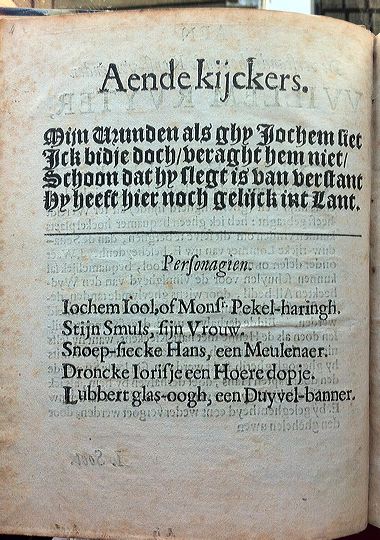 Aende kijckers.
Mijn Vrunden als ghy Jochem siet
Jck bidje doch/veraght hem niet/
Schoon dat hy slegt is van verstant
Hy heeft hier noch gelijck int Lant.
Personagien.
Iochem Iool, of Monsr Pekel-haringh.
Stijn Smuls, sijn Vrouw.
Snoep-siecke Hans, een Meulenaer.
Droncke Iorisje een Hoere dopje.
Lubbert glas-oogh, een Duyvel-banner.